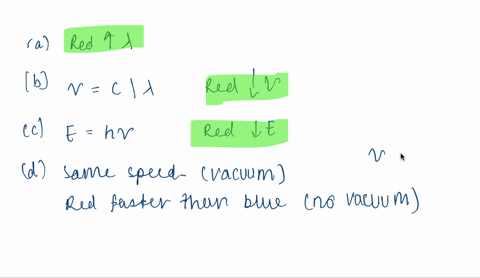 (a) Red ↑ λ
(b) ν = c / λ Red ↓ ν
(c) E = hν Red ↓ E
(d) Same speed (vacuum)
ν
Red faster than blue (no vacuum)